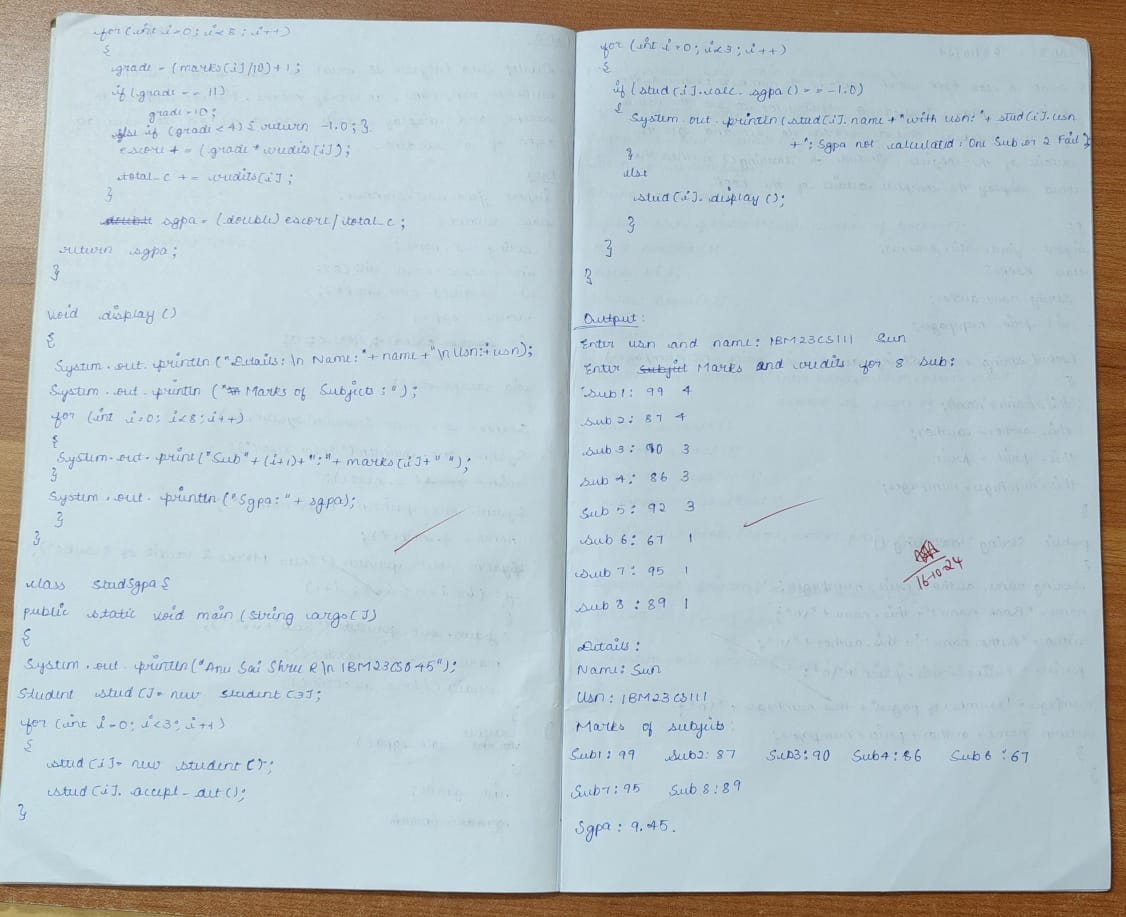 for (int i=0; i<8; i++)
{
grade = (marks[i]/10)+1;
if (grade == 11)
grade=10;
else if (grade <4) { return -1.0; }
escore += (grade * credits[i]);
total_c += credits[i];
}
double sgpa = (double) escore/total_c;
return sgpa;
}
void display ()
{
System.out.println ("Details: \n Name: "+ name + "\n Usn:+ usn);
System.out.println ("Marks of Subjects : ");
for (int i=0; i<8; i++)
{
System.out.print ("Sub"+(i+1)+":"+ marks[i]+" ");
}
System.out.println ("Sgpa:"+ sgpa);
}
}
class StudSgpa {
public static void main (String args[])
{
System.out.println ("Anu Sai Shree R \n 1BM23CS045");
Student stud []= new student [3];
for (int i=0; i<3; i++)
{
stud[i]= new student ();
stud[i]. accept_det ();
}
for (int i=0; i<3; i++)
{
if (stud[i].calc_sgpa () == -1.0)
{
System.out.println (stud[i].name + "with usn:"+ stud[i].usn
+": Sgpa not calculated: One Sub or 2 Fail
}
else
stud[i]. display ();
}
}
}
Output:
Enter usn and name: 1BM23CS111 Sun
Enter Subject Marks and credits for 8 sub:
Sub 1: 99 4
Sub 2: 87 4
Sub 3: 90 3
Sub 4: 86 3
Sub 5: 92 3
Sub 6: 67 1
Sub 7: 95 1
Sub 8: 89 1
16-10-24
Details:
Name: Sun
Usn: 1BM23CS111
Marks of subjects:
Sub1: 99 Sub2: 87 Sub3: 90 Sub4: 86 Sub6: 67
Sub7: 95 Sub8: 89
Sgpa: 9.45.